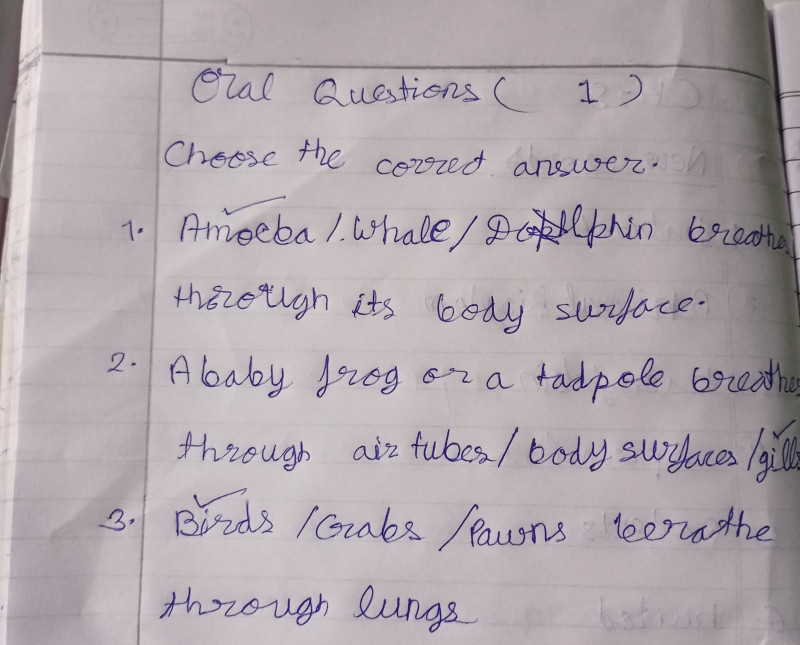 Oral Questions ( 1 )
Choose the correct answer.
1. Amoeba / Whale / Dolphin breathe
through its body surface.
2. A baby frog or a tadpole breathes
through air tubes / body surfaces / gills
3. Birds / Crabs / Pawns berathe
through lungs